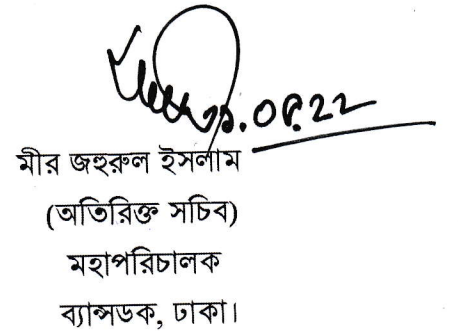 মীর জহুরুল ইসলাম
(অতিরিক্ত সচিব)
মহাপরিচালক
ব্যান্সডক, ঢাকা।